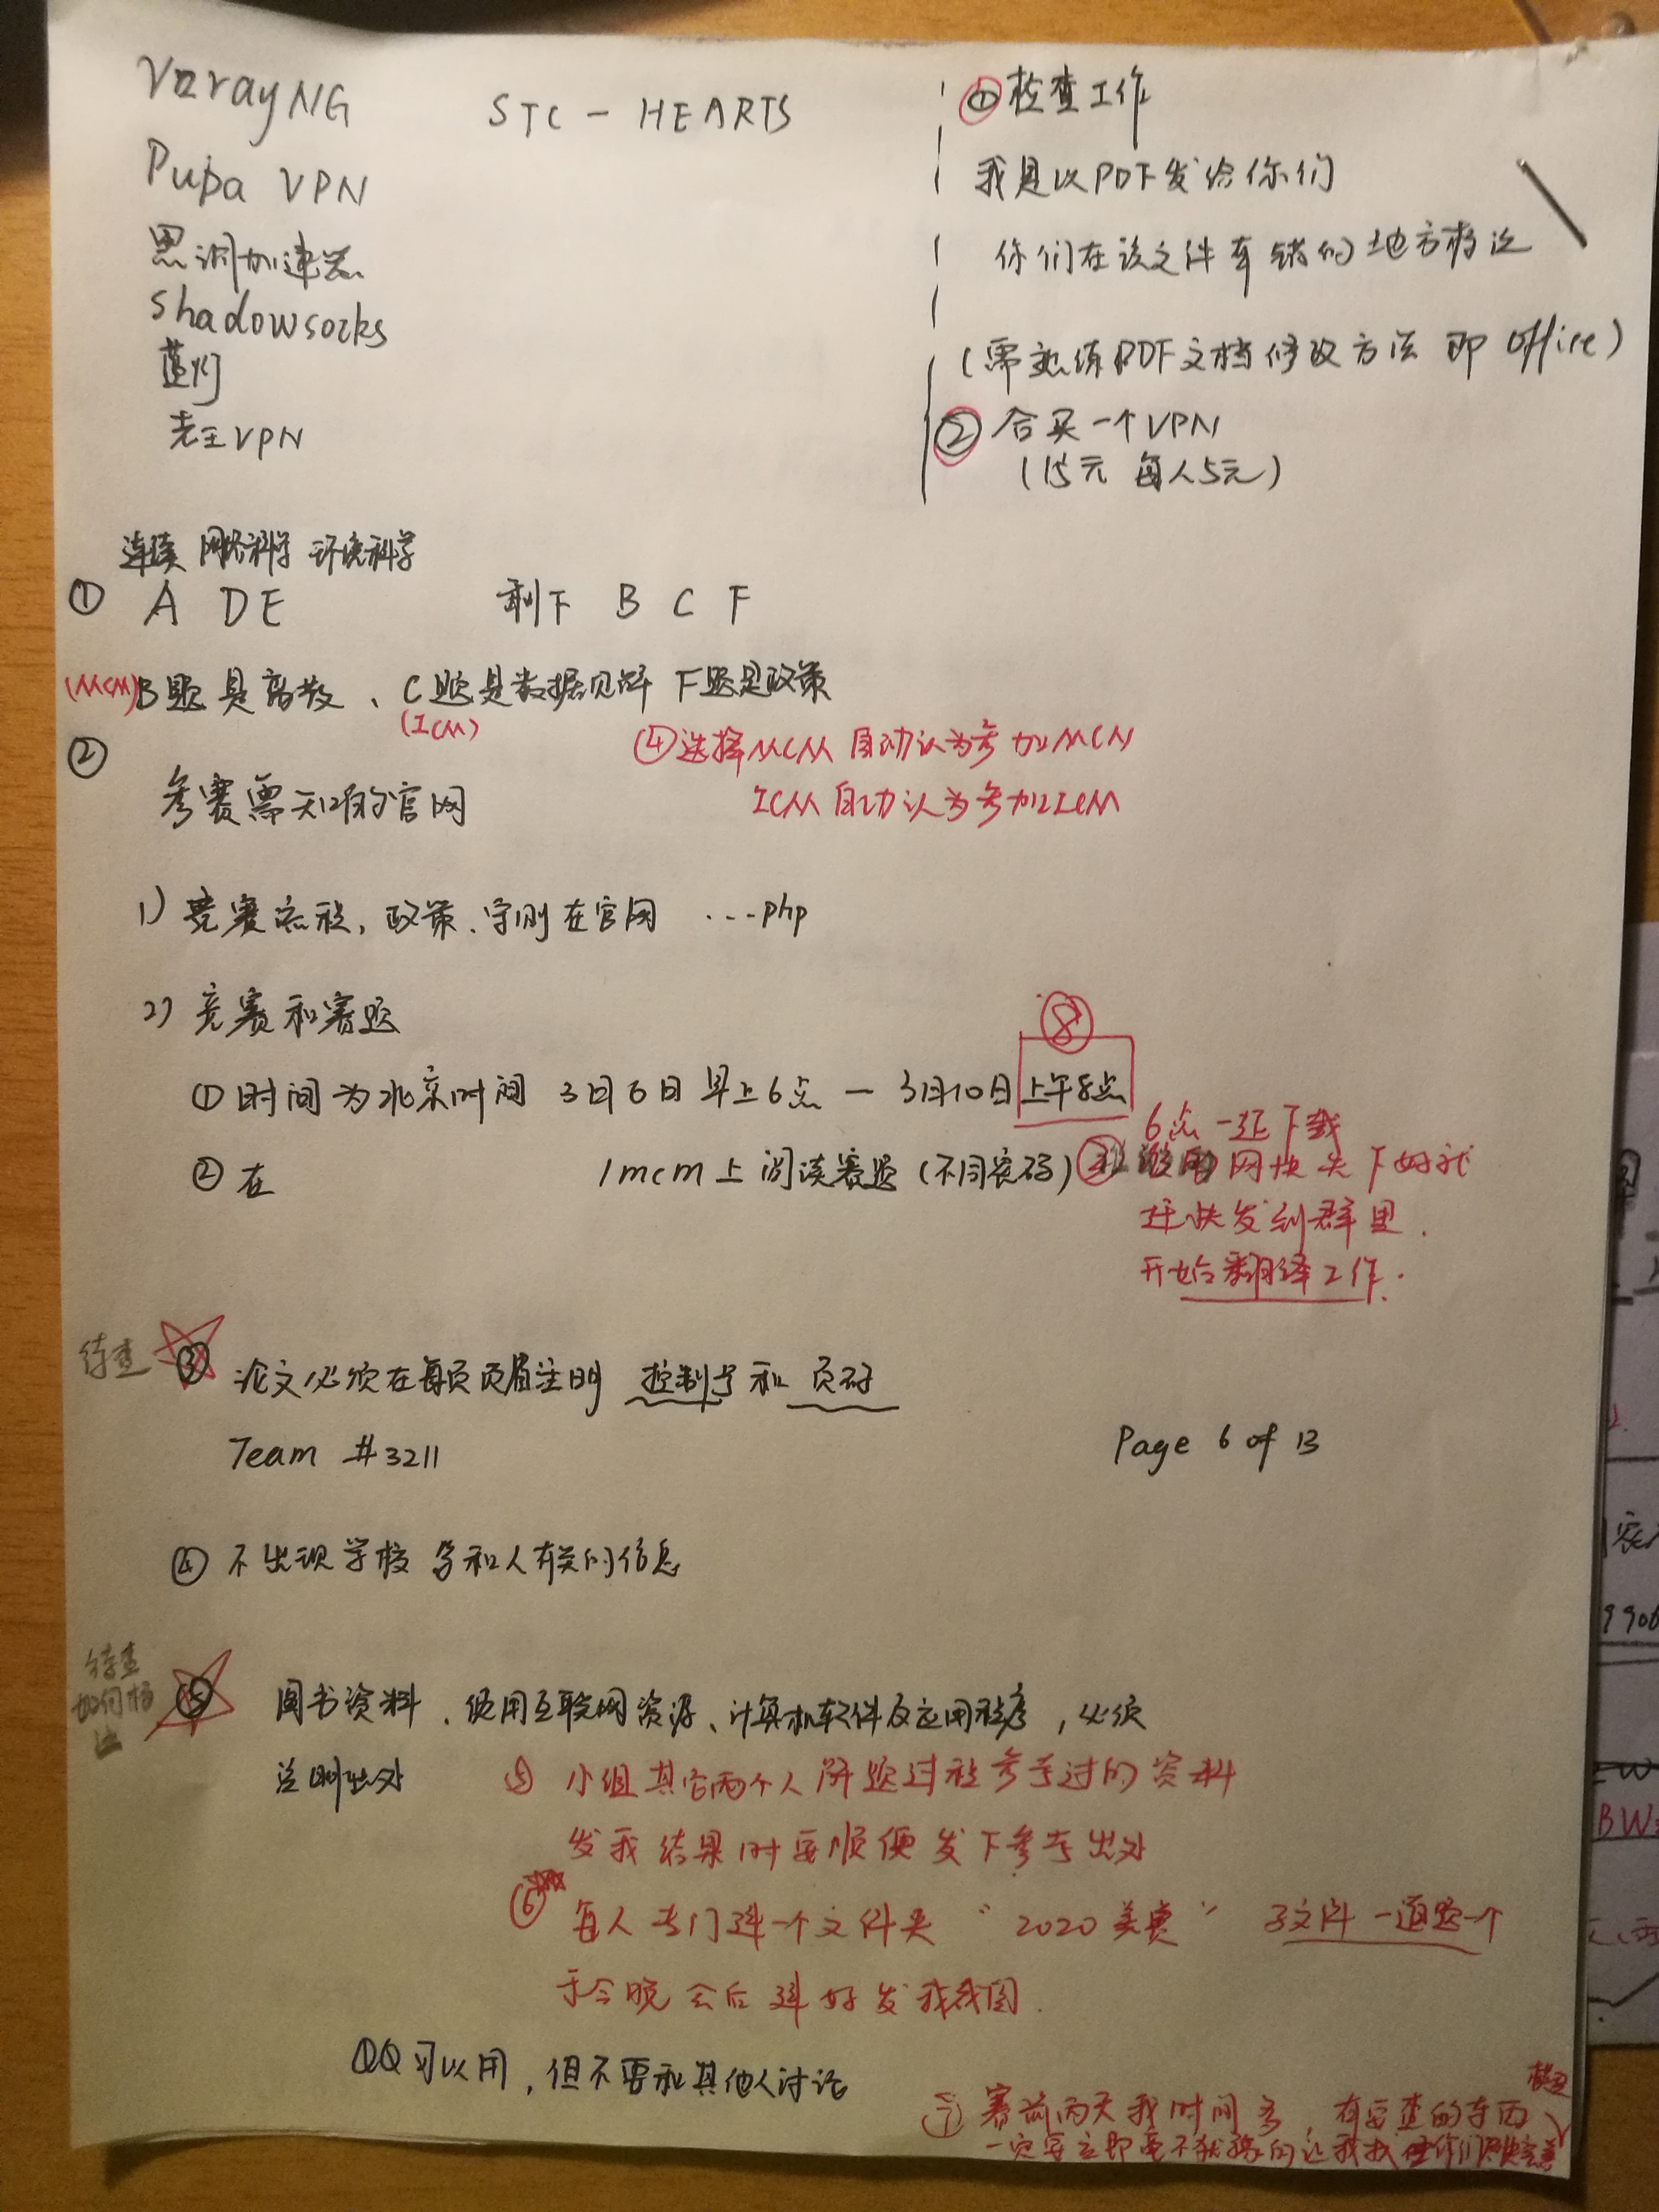 V2rayNG
STC - HEARTS
Pupa VPN
黑洞加速器
Shadowsocks
蓝灯
老王VPN
①检查工作
我是以PDF发给你们
你们在该文件有错的地方标注
(需熟练PDF文档修改方法 即 Office)
② 合买一个VPN
(15元 每人5元)
连续 网络科学 环境科学
① A D E 剩下 B C F
(MCM)B题是离散、C题是数据见解 F题是政策
(ICM)
④选择MCM自动认为参加MCM
ICM自动认为参加ICM
②
参赛需知的官网
1) 竞赛流程,政策、守则在官网 ...php
2) 竞赛和赛题
⑧
① 时间为北京时间 3月6日早上6点 — 3月10日上午8点
② 在 1mcm上阅读赛题(不同密码)
6点一起下载
网快先下好就
赶快发到群里.
开始翻译工作.
待查 ③ 论文必须在每页页眉注明 控制号和 页码
Team #3211 Page 6 of 13
④ 不出现学校 等和人有关的信息
待查
如何标
注
⑤ 图书资料、使用互联网资源、计算机软件及应用程序,必须
注明出处
⑤ 小组其它两个人解题过程参考过的资料
发我结果时要顺便发下参考出处
⑥ 每人专门建一个文件夹 “2020美赛” 子文件一道题一个
于今晚会后建好发我截图.
QQ可以用,但不要和其他人讨论
⑦ 赛前两天我时间多,有要查的东西
一定要立即毫不犹豫的让我找